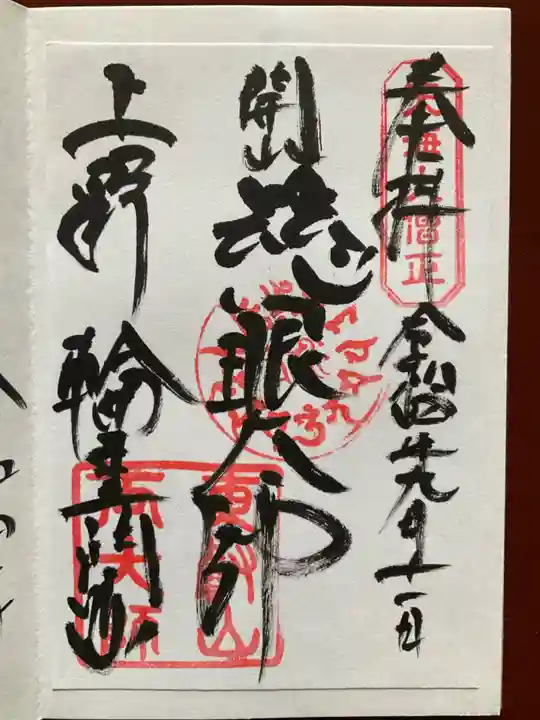 奉拝 令和四年九月十一日
天海大僧正
開山 慈眼大師
上野 輪王門跡
東叡山
両大師